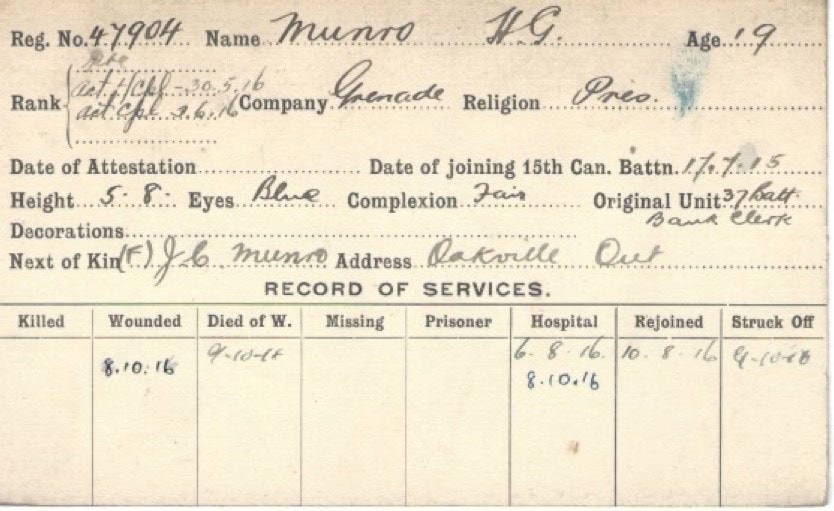 Reg. No. 47904 Name Munro H.G. Age 19
Pte
Act L/Cpl - 30.5.16
Rank Act Cpl 2.6.16 Company Grenade Religion Pres.
Date of Attestation Date of joining 15th Can. Battn. 17.7.15
Height 5-8- Eyes Blue Complexion Fair Original Unit 37 Batt
Decorations Bank Clerk
Next of Kin (F) J.C. Munro Address Oakville Ont
RECORD OF SERVICES.
Killed Wounded Died of W. Missing Prisoner Hospital Rejoined Struck Off
8.10.16 9-10-16 6.8.16. 10.8.16 9-10-16
8.10.16